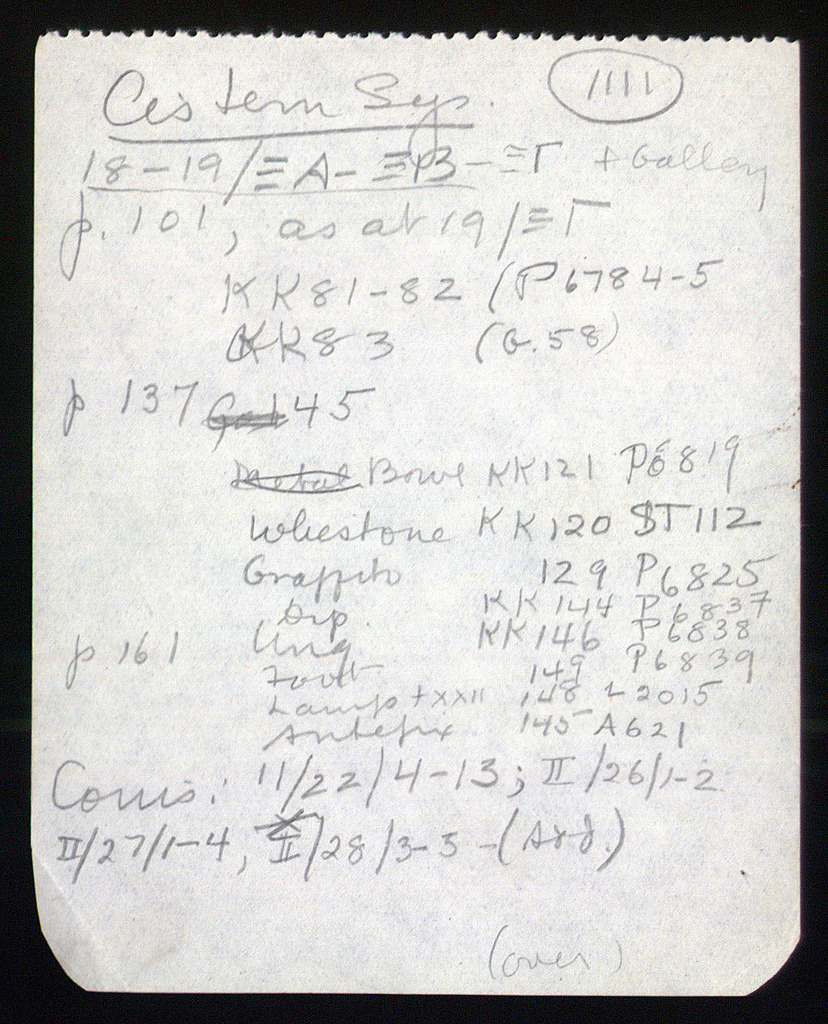 Cistern Sys. 1111
18-19/ΞA-ΞB-ΞΓ + Gallery
p. 101, as at 19/ΞΓ
KK81-82 (P6784-5
KK83 (G.58)
p 137 45
Metal Bowl KK121 P6819
Whestone KK120 ST112
Graffito 129 P6825
Dip. KK144 P6837
p 161 Ung KK146 P6838
Foot 149 P6839
Lamp + XXII 148 L2015
Antefix 145 A621
Coins: 11/22/4-13; II/26/1-2
II/27/1-4, II/28/3-5 -(Add.)
(over)